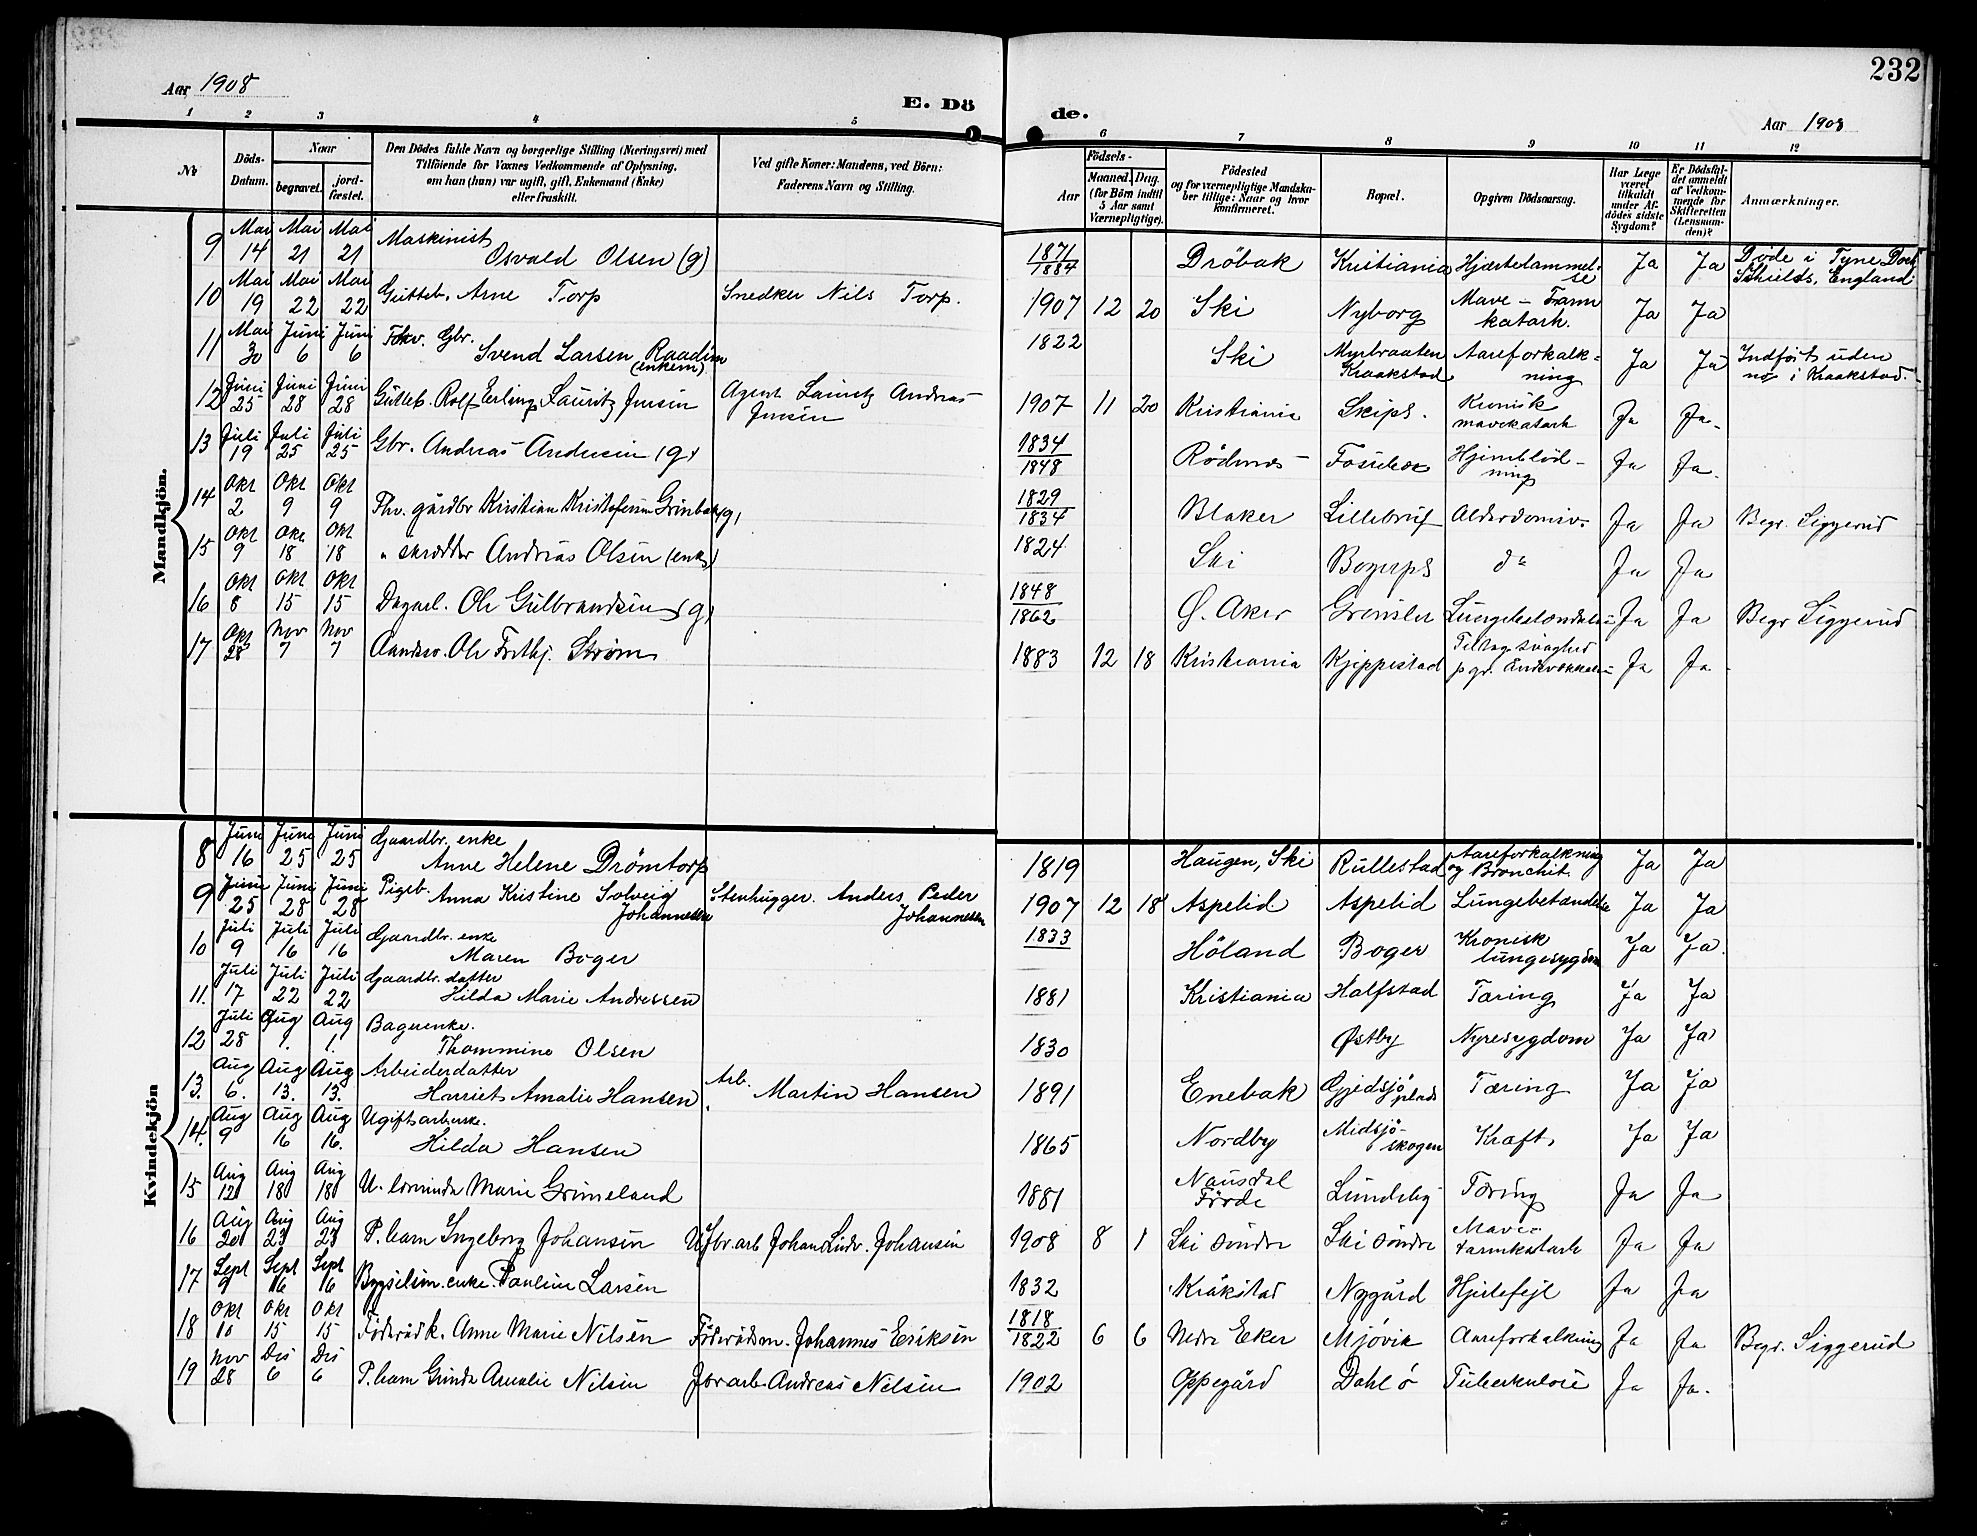 232
Aar 1908
E. Dö
de.
Aar 1908
1 2 3 4 5 6 7 8 9 10 11 12
No
Döds-Datum.
Naar
begravet.
jordfæstet.
Den Dödes fulde Navn og borgerlige Stilling (Næringsvei) med
Tilföiende for Voxnes Vedkommende af Oplysning,
om han (hun) var ugift, gift, Enkemand (Enke)
eller fraskilt.
Ved gifte Koner: Mandens, ved Börn:
Faderens Navn og Stilling.
Födsels-
Aar
Maaned. Dag.
(for Börn indtil
5 Aar samt
Værnepligtige).
Födested
og for værnepligtige Mandska-
ber tillige: Naar og hvor
konfirmeret.
Bopæl.
Opgiven Dödsaarsag.
Har Læge
været
tilkaldt
under Af-
dödes sidste
Sygdom?
Er Dödsfal-
det anmeldt
af Vedkom-
mende for
Skifteretten
(Lensman-
den)?
Anmærkninger.
Mandkjön.
9 Mai 14 Mai 21 Mai 21 Maskinist Osvald Olsen (g) 1871/1884 Dröbak Kristiania Hjærtelammelse Ja Ja Døde i Tyne Dock S Shields, England
10 Mai 19 Mai 22 Mai 22 Gutteb. Arne Torp Snedker Nils Torp. 1907 12 20 Ski Nyborg Mave - Tarmkatarh. Ja Ja
11 Mai 30 Juni 6 Juni 6 Fhv. Gbr. Svend Larsen Raadim (enkem) 1822 Ski Myrbraaten Kraakstad Aareforkalkning Ja Ja Indført uden no i Kraakstad.
12 Juni 25 Juni 28 Juni 28 Gutteb. Rolf Erling Lauritz Jensen Agent Lauritz Andreas Jensen 1907 11 20 Kristiania Skips. Kronisk mavekatarh Ja Ja.
13 Juli 19 Juli 25 Juli 25 Gbr. Andreas Andersen (g) 1834/1848 Rödenes Hjerneblödning Ja Ja.
14 Okt 2 Okt 9 Okt 9 Fhv. gårdbr Kristian Kristofersen (g) 1829/1834 Blaker Ja Ja Begr. Siggerud
15 Okt 9 Okt 18 Okt 18 " skrædder Andreas Olsen (enk.) 1824 Ski do Ja Ja
16 Okt 8 Okt 15 Okt 15 Dagarb. Ole Gulbrandsen (g) 1848/1862 Ø. Aker Lungebetændelse Ja Ja Begr Siggerud
17 Okt 28 Nov 7 Nov 7 Ole Frithj. Strøm 1883 12 18 Kristiania Kjeppestad Ja Ja
Kvindekjön
8 Juni 16 Juni 25 Juni 25 Gaardbr. enke Anne Helene Drömtorp 1819 Haugen, Ski Rullestad Aareforkalkning og Bronchit. Ja Ja
9 Juni 25 Juni 28 Juni 28 Pigeb. Anna Kristine Solveig Johannessen Stenhugger. Anders Peder Johannessen 1907 12 18 Aspelid Aspelid Lungebetændelse Ja Ja
10 Juli 9 Juli 16 Juli 16 Gaardbr. enke Maren Boger 1833 Höland Boger Kronisk lungesygdom Ja Ja.
11. Juli 17 Juli 22 Juli 22 Gaardbr. datter Hilda Marie Andressen 1881 Kristiania Halfstad Tæring Ja Ja
12 Juli 28 Aug 1. Aug 1. Bagerenke. Thommine Olsen 1830 Østby Nyresygdom Ja Ja
13. Aug 6. Aug 13. Aug 13. Arbeiderdatter Harriet Amalie Hansen Arb. Martin Hansen 1891 Enebak Gjedsjö plads Tæring Ja Ja
14. Aug 9 Aug 16 Aug 16. Ugift arberske. Hilda Hansen 1865 Nordby Midsjöskogen Kræft, Ja Ja
15 Aug 12 Aug 18 Aug 18 U. Marie Grimeland 1881 Naustdal Förde Lundeby Tæring Ja Ja
16 Aug 20 Aug 23 Aug 23 P. barn Ingeborg Johansen Johan Ludv. Johansen 1908 8 1 Ski söndre Ski söndre Mave- tarmkatarh Ja Ja
17 Sept 9 Sept 16 Sept 16 Bygselsm. enke. Pauline Larsen 1832 Kråkstad Nygård Hjertefejl Ja Ja
18 Okt 10 Okt 15 Okt 15 Föderådk. Anne Marie Nilsen Föderådsm. Johannes Eriksen 1818/1822 6 6 Nedre Eker Mjövik Aareforkalkning Ja Ja Begr. Siggerud
19 Nov 28 Des 6 Des 6 P. barn Amalie Nilsen Jbr arb. Andreas Nilsen 1902 Oppegård Dahl ö Tuberkulose Ja Ja.